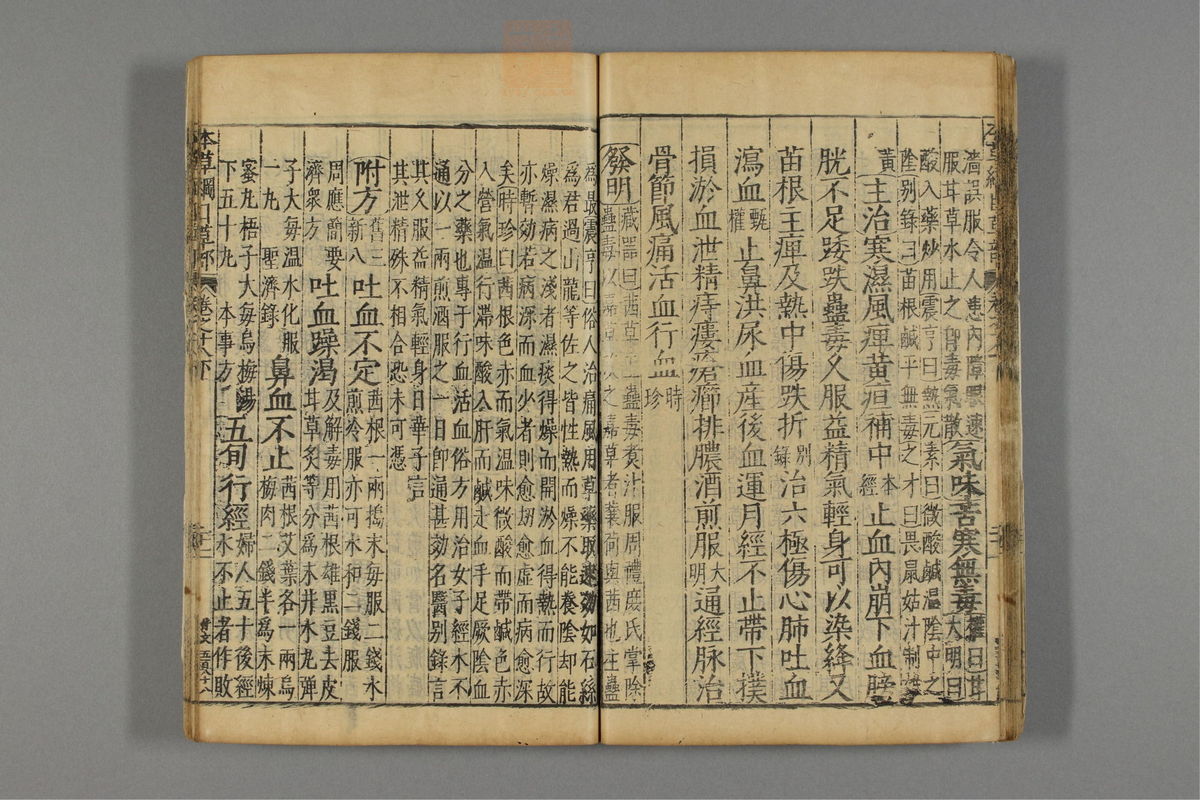 濇誤服令人患內障眼速
服甘草水止之卽毒氣散
氣味苦寒無毒
權曰甘
大明曰
酸入藥炒用震亨曰熱元素曰微酸鹹溫陰中之
陰別錄曰苗根鹹平無毒之才曰畏鼠姑汁制雄
黃
主治寒濕風痺黃疸補中本經止血內崩下血膀
胱不足踒跌蠱毒久服益精氣輕身可以染絳又
苗根主痺及熱中傷跌折別錄治六極傷心肺吐血
瀉血甄權止鼻洪尿血產後血運月經不止帶下撲
損淤血泄精痔瘻瘡癤排膿酒煎服大明通經脈治
骨節風痛活血行血時珍
發明
藏器曰茜草主蠱毒煑汁服周禮庶氏掌除
蠱毒以嘉草攻之嘉草者蘘荷與茜也主蠱
為最震亨曰俗人治痛風用草藥取速効如石絲
為君過山龍等佐之皆性熱而燥不能養陰却能
燥濕病之淺者濕痰得燥而開淤血得熱而行故
亦暫効若病深而血少者則愈刼愈虛而病愈深
矣時珍曰茜根色赤而氣溫味微酸而帶鹹色赤
入營氣溫行滯味酸入肝而鹹走血手足厥陰血
分之藥也專于行血活血俗方用治女子經水不
通以一兩煎酒服之一日卽通甚効名醫別錄言
其久服益精氣輕身日華子言
其泄精殊不相合恐未可憑
附方
舊三
新八
吐血不定
茜根一兩搗末每服二錢水
煎冷服亦可水和二錢服
周應簡要
濟衆方
吐血躁渴
及解毒用茜根雄黑豆去皮
甘草炙等分爲末井水丸彈
子大每溫水化服
一丸 聖濟錄
鼻血不止
茜根艾葉各一兩烏
梅肉二錢半爲末煉
蜜丸梧子大每烏梅湯
下五十丸 本事方
五旬行經
婦人五十後經
水不止者作敗
本草綱目草部 卷之十八下